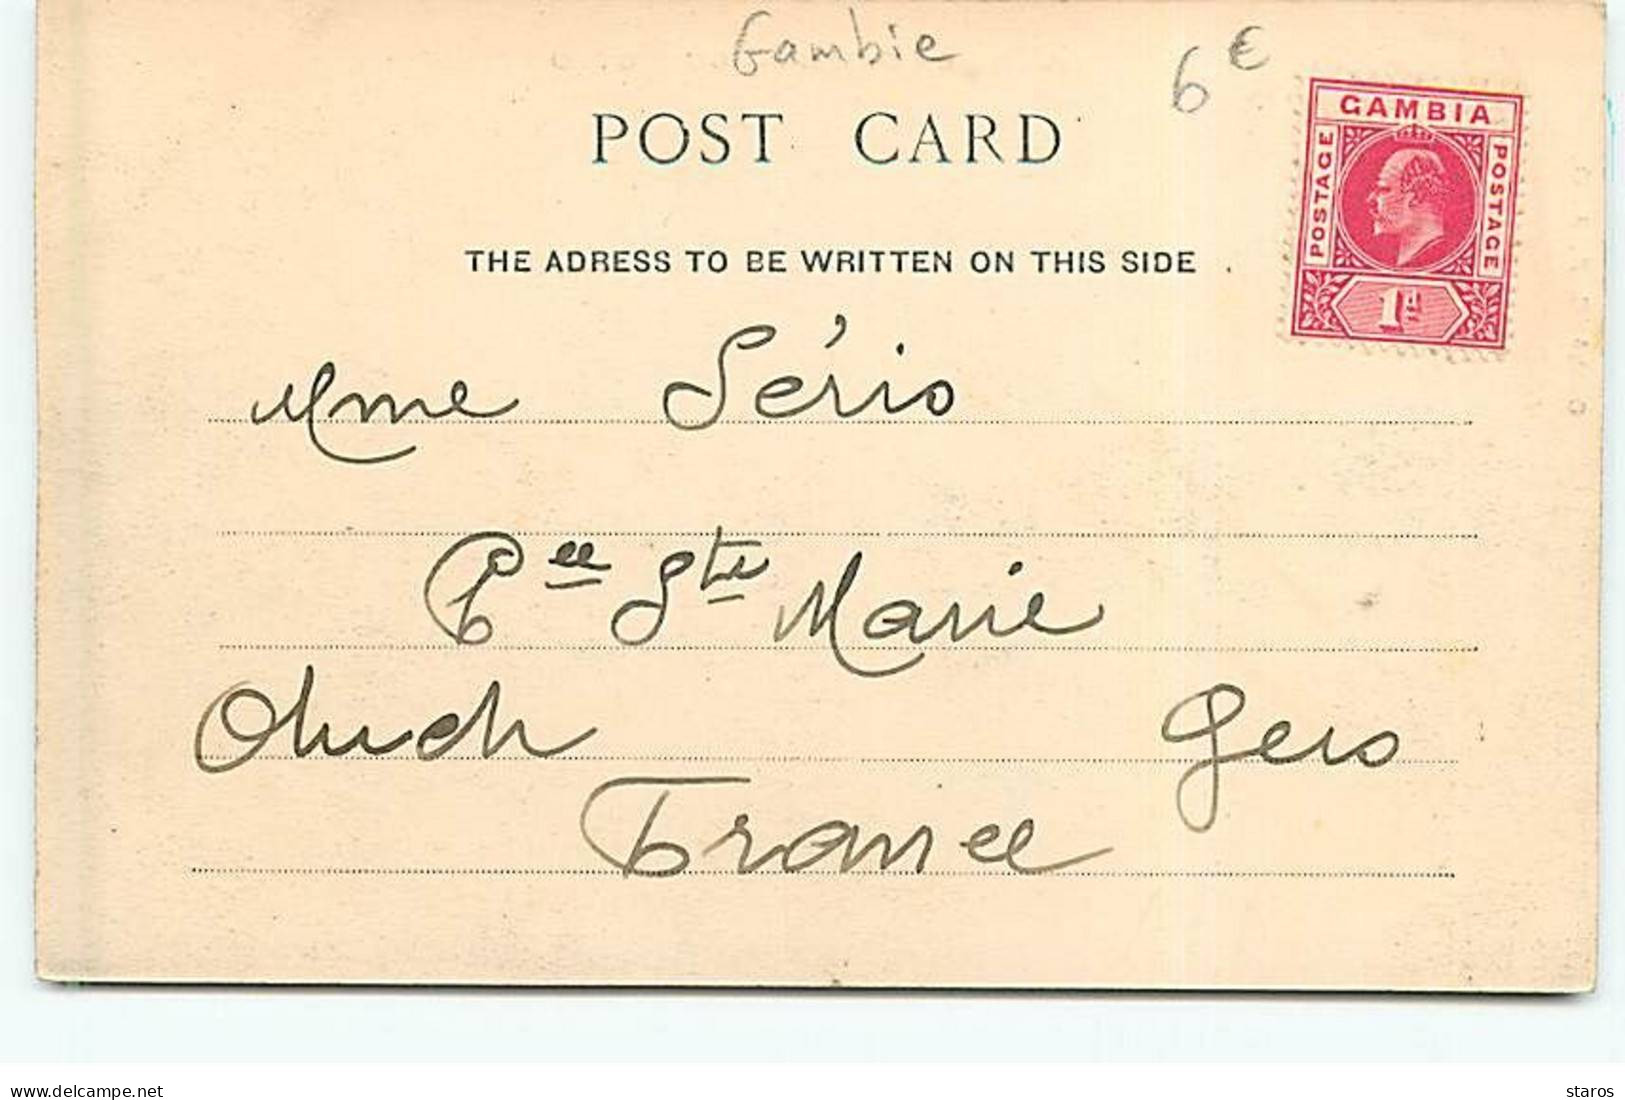 Gambie
6 €
POST CARD
GAMBIA
POSTAGE
POSTAGE
1d
THE ADRESS TO BE WRITTEN ON THIS SIDE .
Mme Sério
Pee Ste Marie
Auch Gers
France
www.delcampe.net
staros